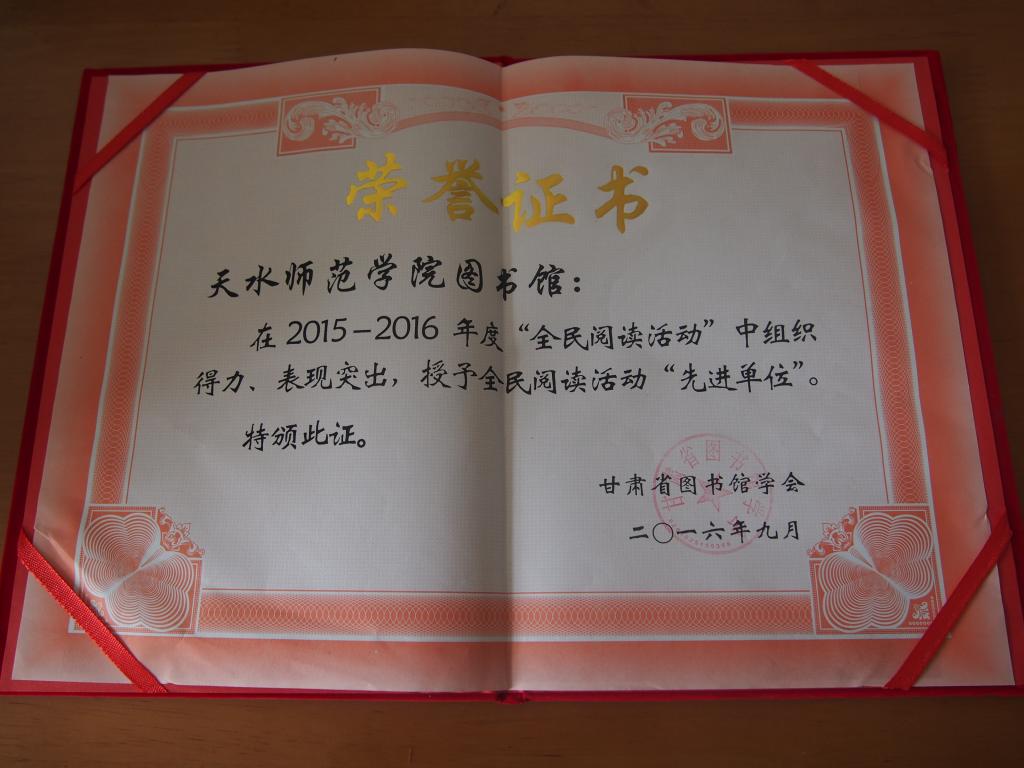 荣誉证书
天水师范学院图书馆：
在 2015-2016 年度“全民阅读活动”中组织
得力、表现突出，授予全民阅读活动“先进单位”。
特颁此证。
甘肃省图书馆学会
二〇一六年九月